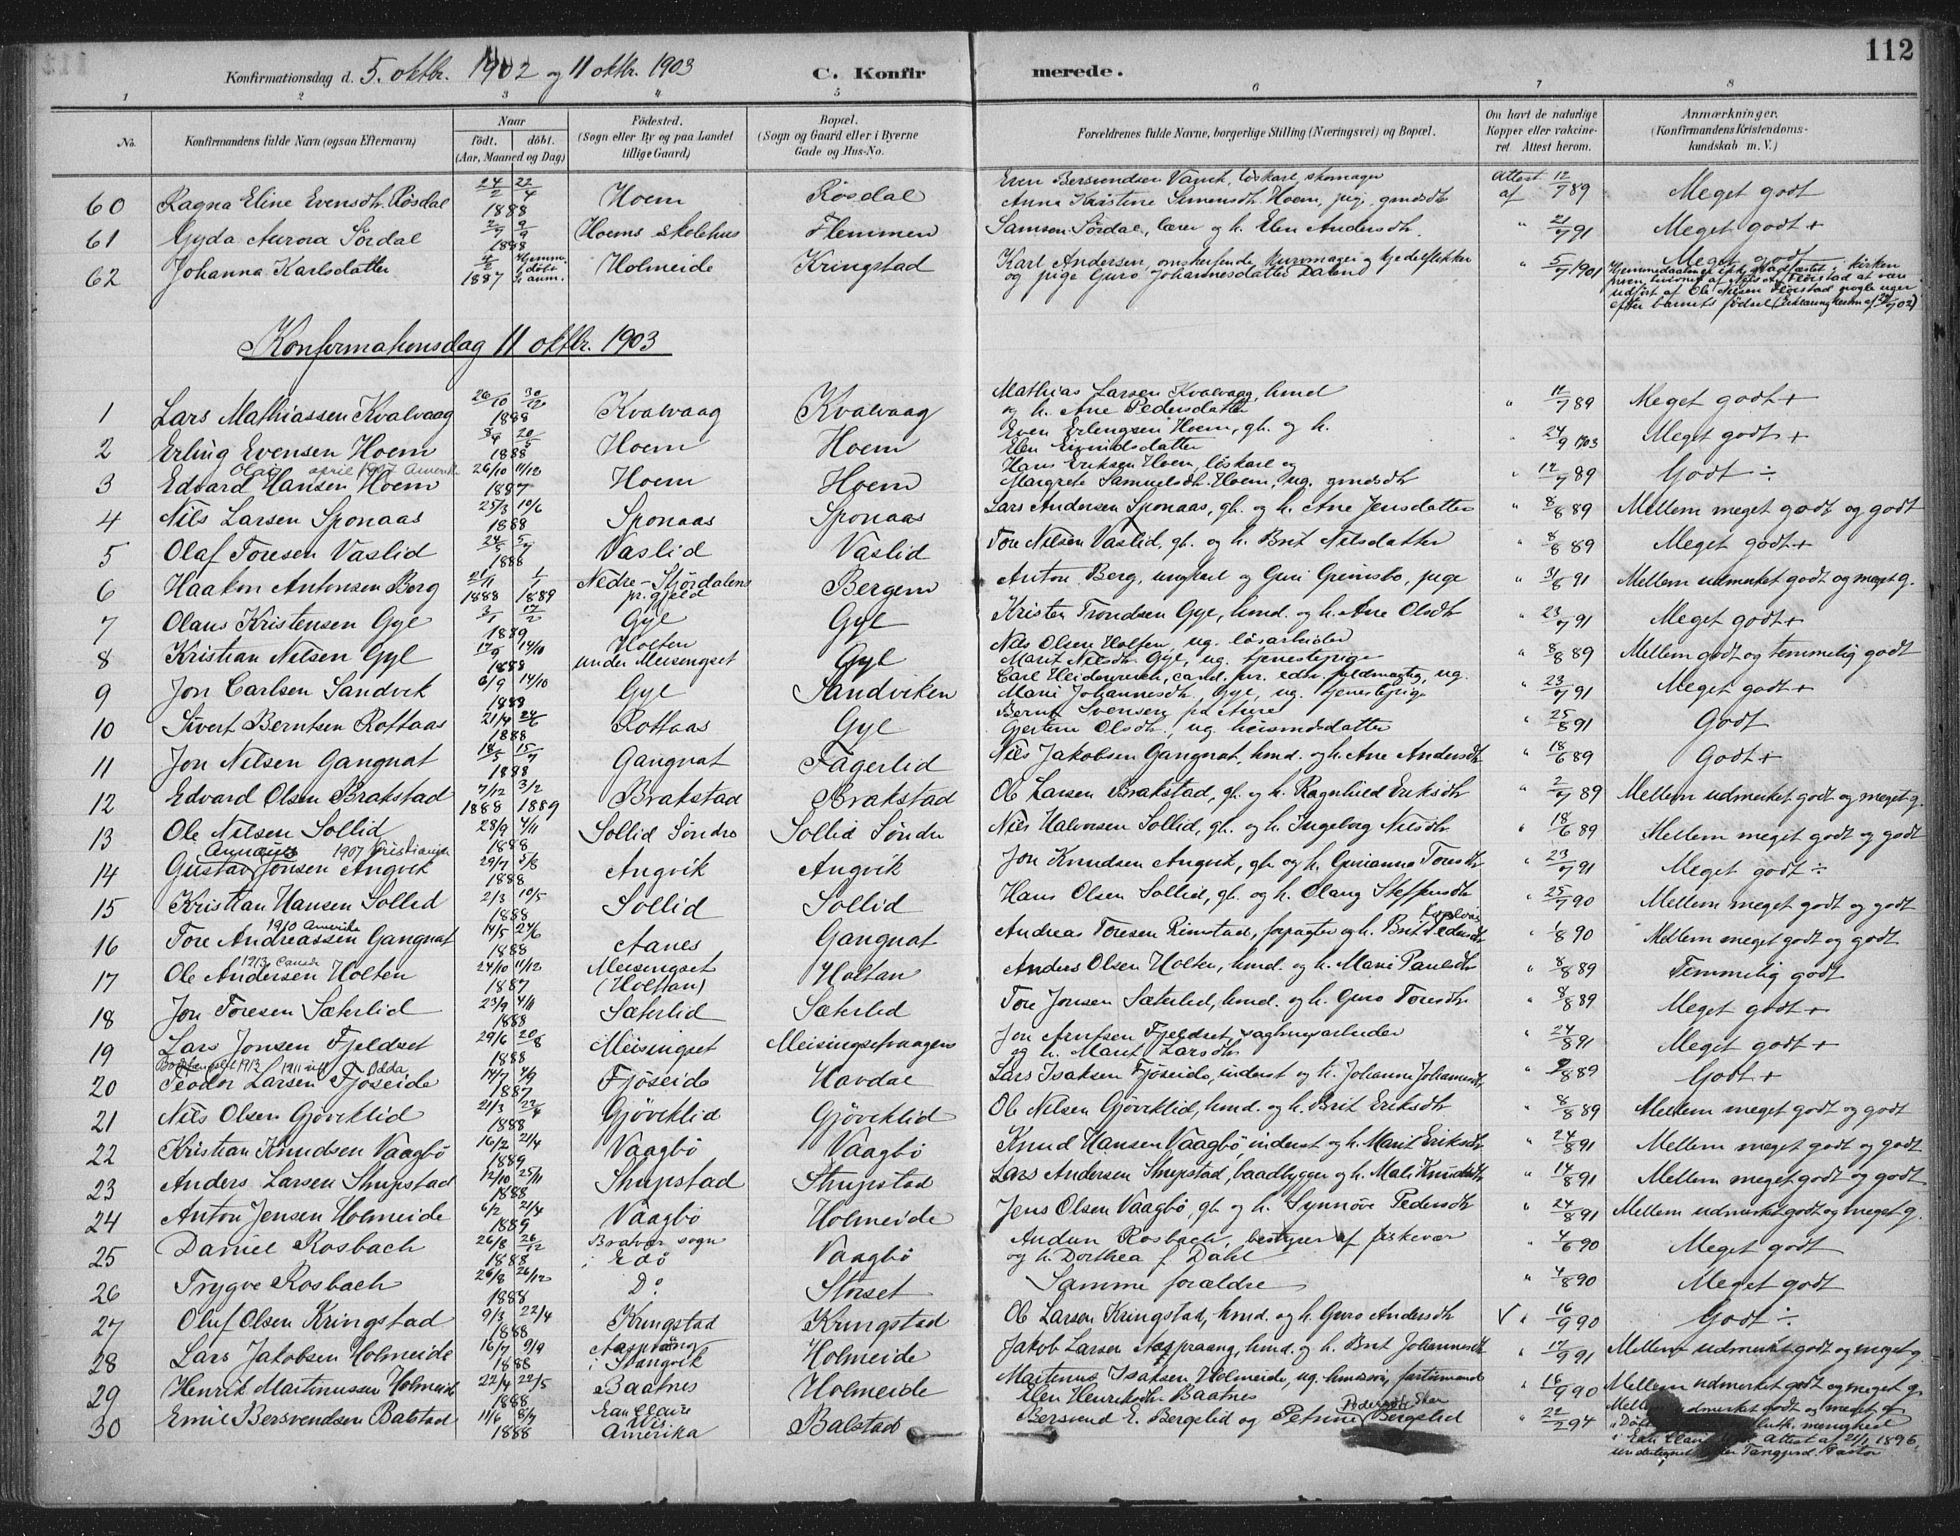 112
Konfirmationsdag d. 5. oktbr. 1902 og 11 oktbr. 1903 C. Konfirmerede.
1 2 3 4 5 6 7 8
No. Konfirmandens fulde Navn (ogsaa Efternavn) Naar födt. döbt. (Aar, Maaned og Dag) Födested. (Sogn eller By og paa Landet tillige Gaard) Bopæl. (Sogn og Gaard eller i Byerne Gade og Hus-No. Forældrenes fulde Navne, borgerlige Stilling (Næringsvei) og Bopæl. Om havt de naturlige Kopper eller vakcineret. Attest herom. Anmærkninger. (Konfirmandens Kristendomskundskab m. V.)
60 Ragna Eline Evensdh. Rösdal 24/2 22/4 1888 Hoem Rösdal Even Bersvendsen Vanek, löskarl, skomager Anna Kristine Simensdh. Hoem, pige, gmdsdh Attest af 12/7 89 Meget godt
61 Gyda Aurora Sördal 2/7 9/9 1888 Hoems skolehus Flemmen Samson Sördal, lærer og h. Elen Andersdh. " 21/7 91 Meget godt +
62 Johanna Karlsdatter 4/2 1887 Hjemmedöbt Holmeide Kringstad Karl Andersen, omstreifende, kuremager og kjedelflikker og pige Guro Johannesdatter Daland " 5/7 1901 Meget godt
Konfirmationsdag 11 oktbr. 1903
1 Lars Mathiassen Kvalvaag 26/10 30/12 1888 Kvalvaag Kvalvaag Mathias Larsen Kvalvaag, hmd og h. Ane Pedersdatter " 11/7 89 Meget godt +
2 Erling Evensen Hoem 8/4 20/5 1888 Hoem Hoem Even Erlingsen Hoem, gb. og h. Elen Eivindsdatter " 24/9 1903 Meget godt +
3 Edvard Olai Hansen Hoem april 1907 Amerik 26/10 11/12 1887 Hoem Hoem Hans Eriksen Hoem, löskarl og Margrete Samuelsdh. Hoem, ug. gmdsdh " 12/7 89 Godt ÷
4 Nils Larsen Sponaas 25/3 10/6 1888 Sponaas Sponaas Lars Andersen Sponaas, gb. og h. Ane Jensdatter " 8/8 89 Mellem meget godt og godt
5 Olaf Toresen Vaslid 24/5 5/7 1888 Vaslid Vaslid Tore Nilsen Vaslid, gb. og h. Brit Nilsdatter " 8/8 89 Meget godt +
6 Haakon Antonsen Berg 21/11 1888 1/1 1889 Nedre-Stjördalens pr.gjeld Bergem Anton Berg, ungkarl og Guri Grimsbo, pige " 31/8 91 Mellem udmerket godt og meget g.
7 Olaus Kristensen Gyl 3/1 17/2 1889 Gyl Gyl Kristen Trondsen Gyl, hmd. og h. Ane Olsdh " 23/7 91 Meget godt +
8 Kristian Nilsen Gyl 17/9 14/10 1888 Holten under Meisingset Gyl Nils Olsen Holten, ug. lösarbeider Marit Nilsdh. Gyl, ug. tjenestepige " 8/8 89 Mellem godt og temmelig godt
9 Jon Carlsen Sandvik 6/9 14/10 1888 Gyl Sandviken Carl Heidenreich, cand. jur. edsv. fuldmægtig, ug. Marie Johannesdh. Gyl, ug. tjenestepige " 23/7 91 Meget godt +
10 Sivert Berntsen Rottaas 21/4 24/6 1888 Rottaas Gyl Bernt Svensen fra Aure Gjertine Olsdh., ug. huismdsdatter " 25/8 91 Godt
11 Jon Nilsen Gangnat 18/5 15/7 1888 Gangnat Fagerlid Nils Jakobsen Gangnat, hmd. og h. Ane Andersdh " 18/6 89 Godt +
12 Edvard Olsen Brakstad 7/12 1888 3/2 1889 Brakstad Brakstad Ole Larsen Brakstad, gb. og h. Ragnhild Eriksdh " 2/7 89 Mellem udmerket godt og meget g.
13 Ole Nilsen Sollid 28/9 4/11 1888 Sollid Söndre Sollid Söndre Nils Halvorsen Sollid, gb. og h. Ingeborg Nilsdh " 18/6 89 Mellem meget godt og godt
14 Gustav Annanius Jonsen Angvik 1907 Kristiania 29/7 5/8 1888 Angvik Angvik Jon Knudsen Angvik, gb. og h. Gurianna Toresdh " 23/7 91 Meget godt ÷
15 Kristian Hansen Sollid 2/3 10/5 1888 Sollid Sollid Hans Olsen Sollid, gb. og h. Olaug Steffensdh " 25/7 90 Mellem meget godt og godt
16 Tore Andreassen Gangnat 1910 Amerika 14/5 24/6 1888 Aanes Gangnat Andreas Toresen Rimstad, forpagter og h. Brit Pedersdh " 1/8 90 Mellem meget godt og godt
17 Ole Andersen Holten 1913 Canada 24/10 11/12 1887 Meisingset (Holtan) Holtan Anders Olsen Holten, hmd. og h. Marie Paulsdh " 8/8 89 Temmelig godt
18 Jon Toresen Sæterlid 23/9 4/11 1888 Sæterlid Sæterlid Tore Jonsen Sæterlid, hmd. og h. Guro Toresdh " 8/8 89 Meget godt
19 Lars Jonsen Fjeldset 29/6 20/8 1888 Meisingset Meisingsetvaagen Jon Arntsen Fjeldset, sagbrugsarbeider og h. Marit Larsdh " 24/8 91 Meget godt +
20 Teodor Larsen Fjöseide 1913 1911 Odda 14/7 4/9 1887 Fjöseide Havdal Lars Isaksen Fjöseide, inderst og h. Johanne Johannesdh " 9/8 89 Godt +
21 Nils Olsen Gjöviklid 21/3 22/4 1888 Gjöviklid Gjöviklid Ole Nilsen Gjöviklid, hmd. og h. Brit Eriksdh " 8/8 89 Mellem meget godt og godt
22 Kristian Knudsen Vaagbö 16/2 21/4 1889 Vaagbö Vaagbö Knud Hansen Vaagbö, inderst og h. Marit Eriksdh " 24/8 91 Mellem meget godt og godt
23 Anders Larsen Stupstad 12/10 25/11 1888 Stupstad Stupstad Lars Andersen Stupstad, baadbygger og h. Mali Knudsdh " 14/8 91 Mellem meget godt og godt
24 Anton Jensen Holmeide 6/2 21/4 1889 Vaagbö Holmeide Jens Olsen Vaagbö, gb. og h. Synnöve Pedersdh " 24/8 91 Mellem udmerket godt og meget g.
25 Daniel Rosbach 26/8 26/12 1888 Bratvær sogn i Edö Vaagbö Anton Rosbach, bestyrer af fiskevær og h. Dorthea f. Dahl " 4/6 90 Meget godt
26 Trygve Rosbach 26/8 26/12 1888 Do Storset Samme forældre " 4/8 90 Meget godt
27 Oluf Olsen Kringstad 9/3 22/4 1888 Kringstad Kringstad Ole Larsen Kringstad, hmd. og h. Guro Andersdh V " 16/9 90 Godt ÷
28 Lars Jakobsen Holmeide 16/7 9/9 1888 Aasprong i Stangvik Holmeide Jakob Larsen Aasprang, hmd. og h. Brit Johannesdh " 17/9 91 Mellem udmerket godt og meget g.
29 Henrik Martinussen Holmeide 22/4 22/5 1888 Baatnes Holmeide Martinus Isaksen Holmeide, ug. hmssön, fartömand Elen Henriksdh Baatnes " 16/9 90 Mellem udmerket godt og meget g.
30 Emil Bersvendsen Balstad 11/6 8/7 1888 Eau Claire Wis. Amerika Balstad Bersvend E. Bergslid og Petrine Pedersdh Bergslid " 22/2 94 Mellem udmerket godt og meget g. Attest af 21/1 1896,